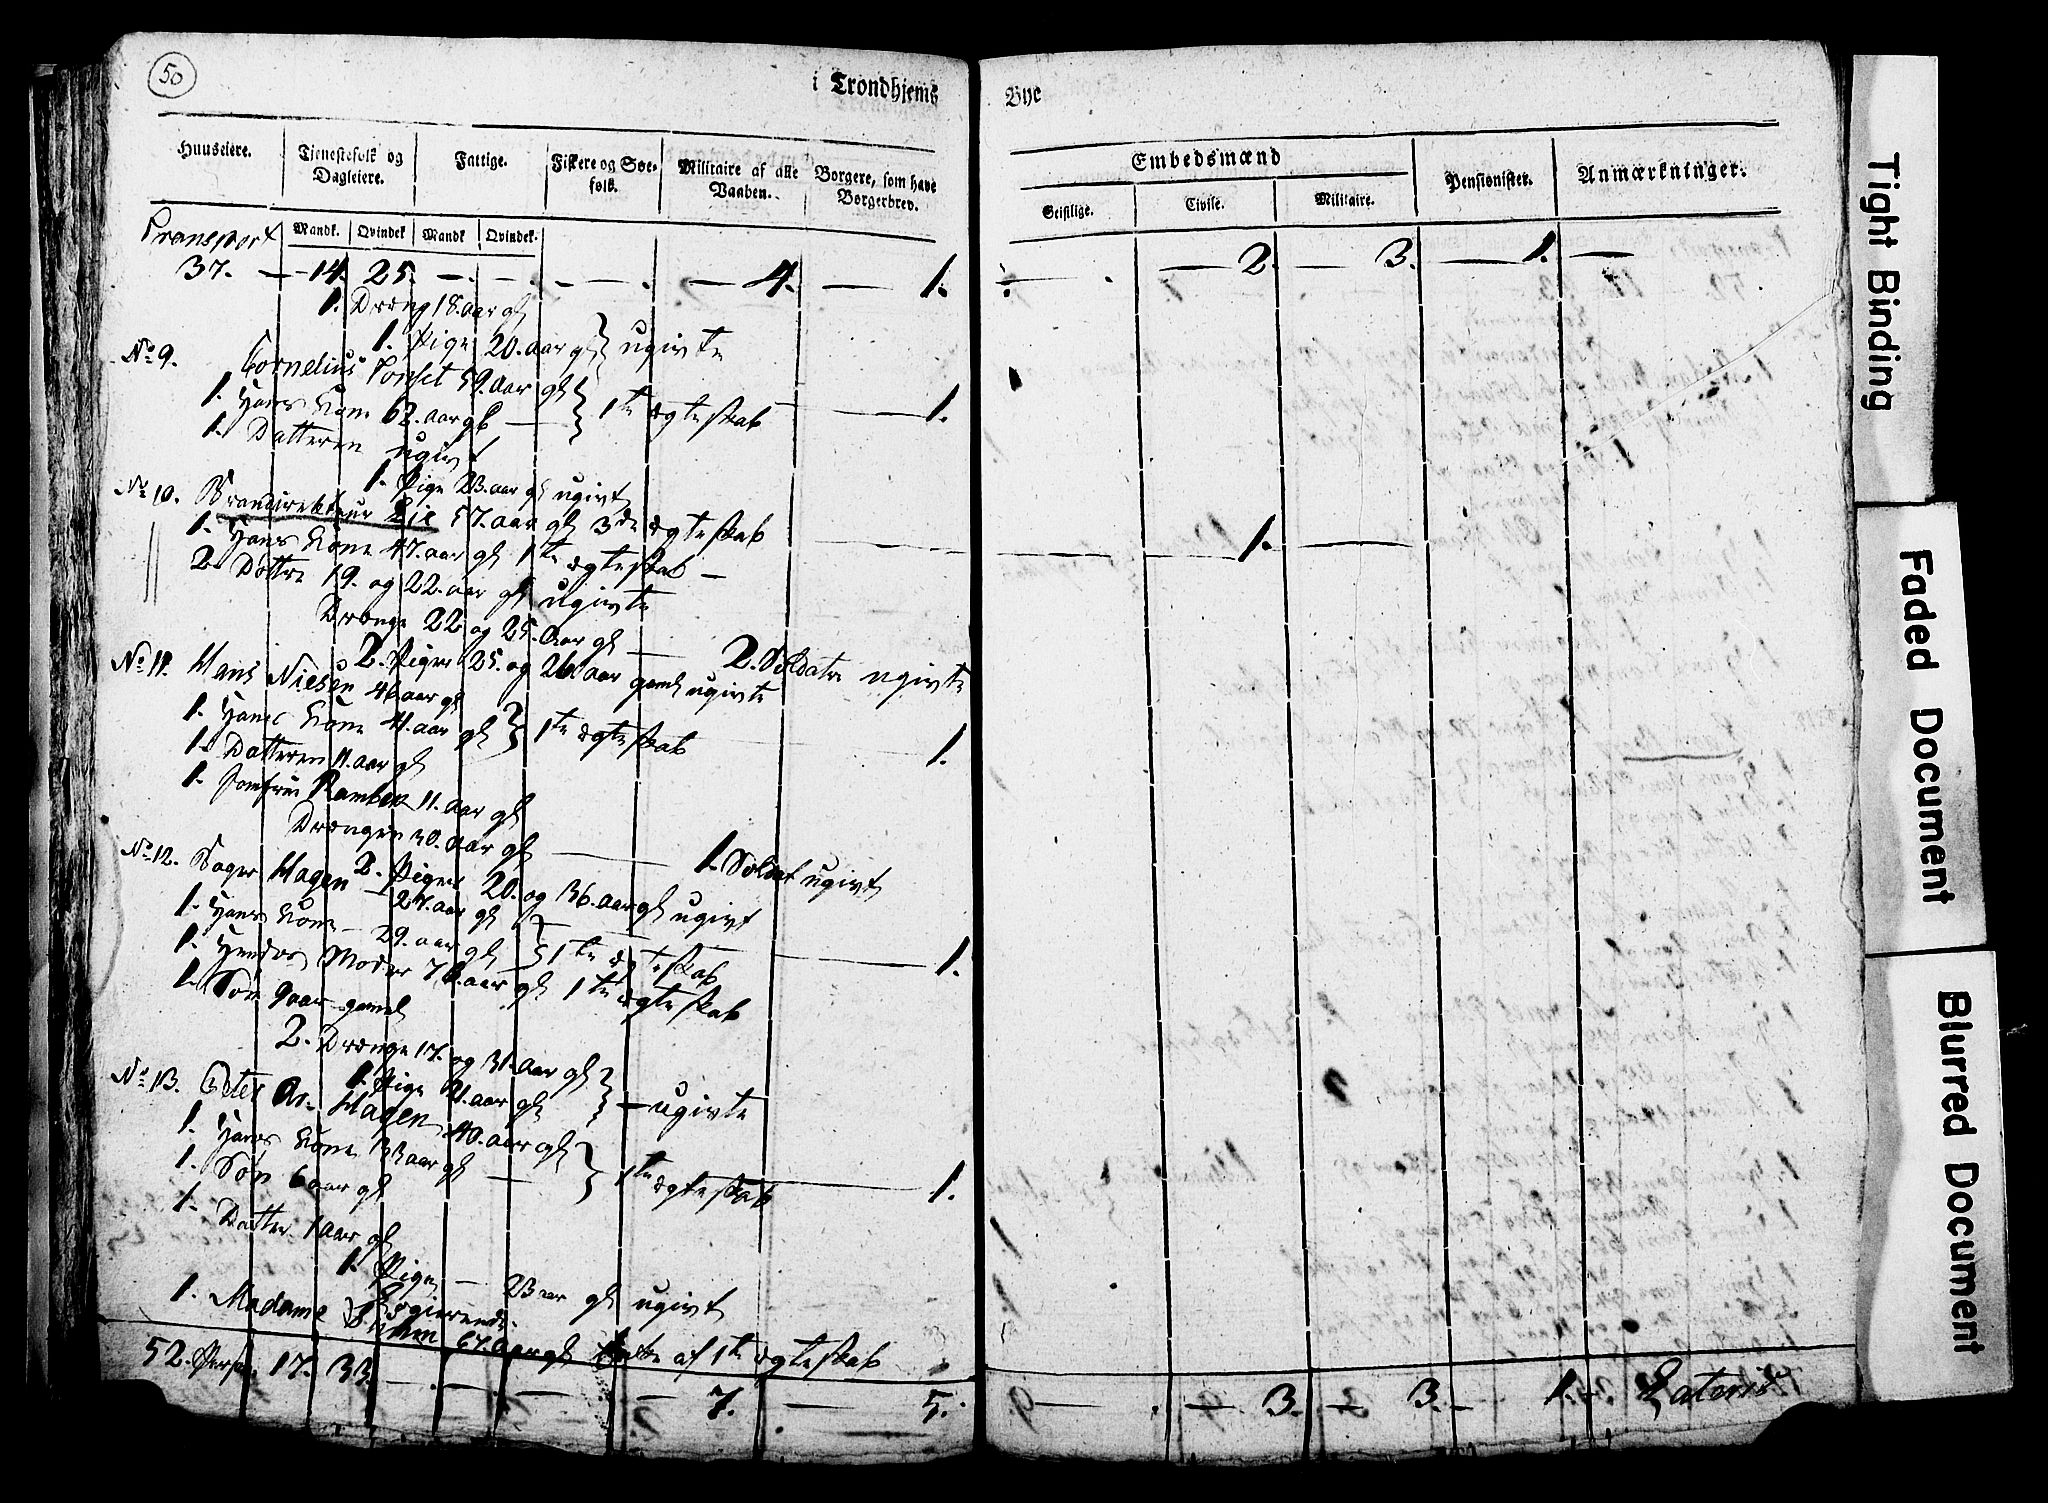 50
i Trondhjems
Bye
Huuseiere.
Tjenestefolk og Dagleiere.
Fattige.
Fiskere og Søe-folk.
Militaire af alle Vaaben.
Borgere, som have Borgerbrev.
Embedsmænd
Pensionister.
Anmærkninger.
Geistlige.
Civile.
Militaire.
Mandk. Qvindek. Mandk. Qvindek.
Transport
37. — 14. 25. — . — . — . — 4. — 1. — . — 2. — 3. — 1. —
1. Dreng 18. aar gl
1. Pige 20. aar gl } ugivte
No 9. Cornelius Tonset 59. aar gl
1. Hans Kone 62. aar gl — } 1te ægteskab — 1.
1. Datteren ugivt
1. Pige 23. aar gl ugivt
No 10. Brandirekteur Lie 57. aar gl 3de ægteskab
1. Hans Kone 47. aar gl 1te ægteskab — 1. —
2. Døttre 19. og 22. aar gl ugivte
Drenge 22 og 25. aar gl — 2. Soldater ugivte
2. Piger 25. og 26 aar gaml ugivte
No 11. Hans Niesen 46 aar gl
1. Hans Kone 41. aar gl } 1te ægteskab — 1.
1. Datteren 11. aar gl
1. Jomfrue 11. aar gl
Drengen 30. aar gl — 1. Soldat ugivt
2. Piger 20. og 36. aar gl ugivt
No 12. Hagen — 27. aar gl
1. Hans Kone — 29. aar gl } 1te ægteskab — 1.
1. Hendes Moder aar gl 1te ægteskab
1. Søn 9 aar gamel
2. Drenge 17. og 31. aar gl
1. Pige 21. aar gl } — ugivte
No 13. Peter Hagen 40. aar gl
1. Hans Kone 33 aar gl — } 1te ægteskab — 1.
1. Søn 6 aar gl
1. Datter 1 aar gl
1. Pige — 23 aar gl ugivt
Logierende.
1. Madame 67. aar gl af 1te ægteskab
52. Pers. 17. 33. — . — . — 7. — 5. — . — 3. — 3. — 1. — Lateris
Tight Binding
Faded Document
Blurred Document